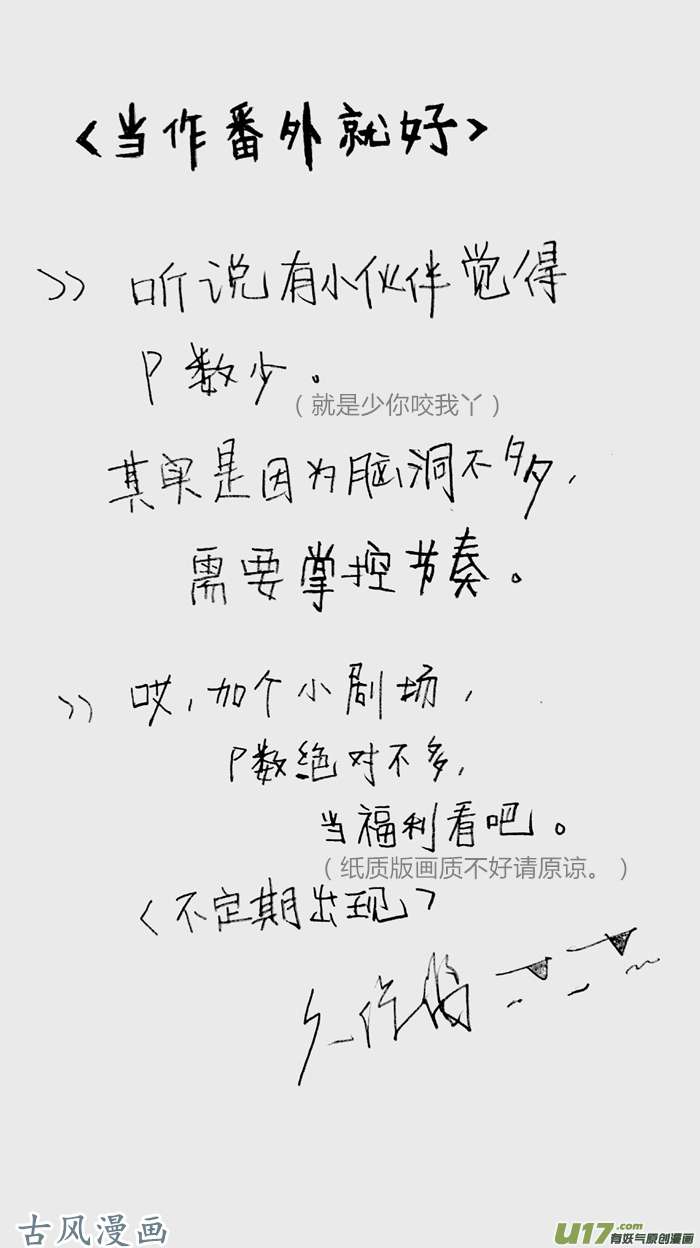 <当作番外就好>
>> 听说有小伙伴觉得
P数少。
（就是少你咬我丫）
其实是因为脑洞不多，
需要掌控节奏。
>> 哎，加个小剧场，
P数绝对不多，
当福利看吧。
（纸质版画质不好请原谅。）
<不定期出现>
古风漫画
U17.com
有妖气原创漫画